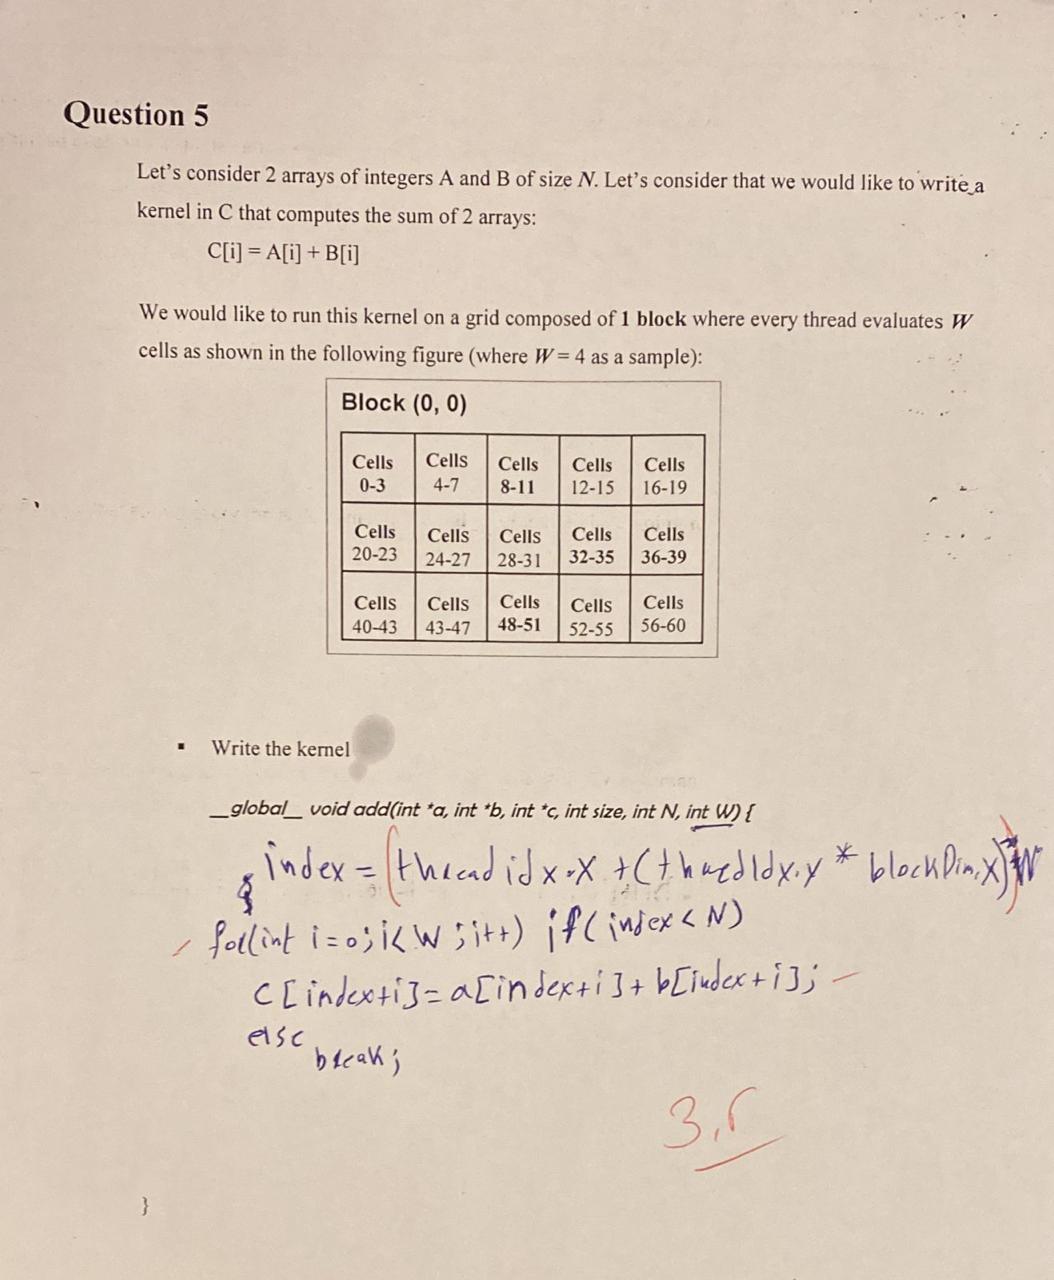 Question 5
Let's consider 2 arrays of integers A and B of size N. Let's consider that we would like to write a
kernel in C that computes the sum of 2 arrays:
C[i] = A[i] + B[i]
We would like to run this kernel on a grid composed of 1 block where every thread evaluates W
cells as shown in the following figure (where W = 4 as a sample):
Block (0, 0)
Cells Cells Cells Cells Cells
0-3 4-7 8-11 12-15 16-19
Cells Cells Cells Cells Cells
20-23 24-27 28-31 32-35 36-39
Cells Cells Cells Cells Cells
40-43 43-47 48-51 52-55 56-60
▪ Write the kernel
__global__ void add(int *a, int *b, int *c, int size, int N, int W) {
index = (threadidx.x + (threadIdx.y * blockDim.x)) * W
for(int i=0; i<W; i++) if(index < N)
c[index+i] = a[index+i] + b[index+i];
else
break;
}